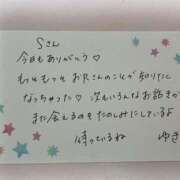 Sさん
今日もありがとう♡
もっともっとお兄さんのことが知りたく
なっちゃった♡ 次もいろんなお話きかせて
また会えるのをたのしみにしているよ
待っているね ゆき